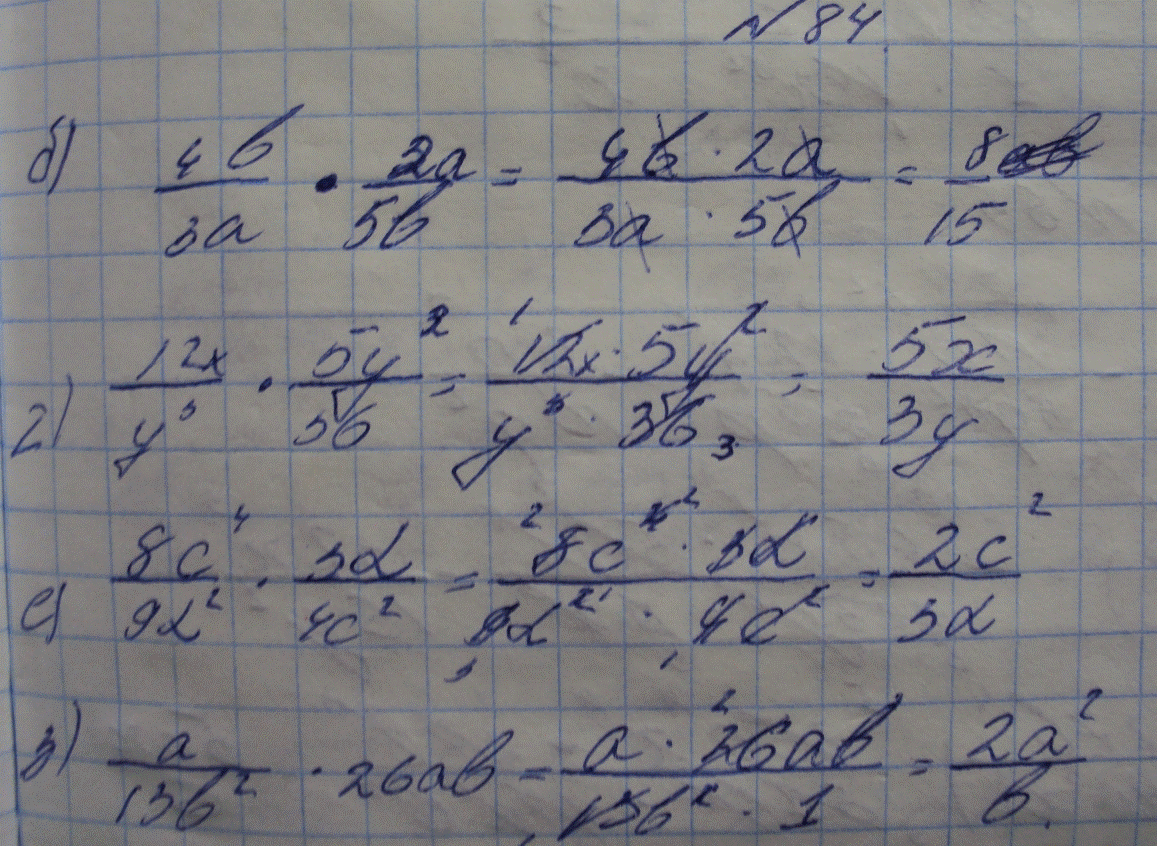 № 84.
б) 4b/3a · 2a/5b = 4b · 2a / 3a · 5b = 8/15
г) 12x/y³ · 5y²/36 = 12x · 5y² / y³ · 36 = 5x/3y
е) 8c⁴/9d² · 3d/4c² = 8c⁴ · 3d / 9d² · 4c² = 2c²/3d
з) a/13b² · 26ab = a · 26ab / 13b² · 1 = 2a²/b.